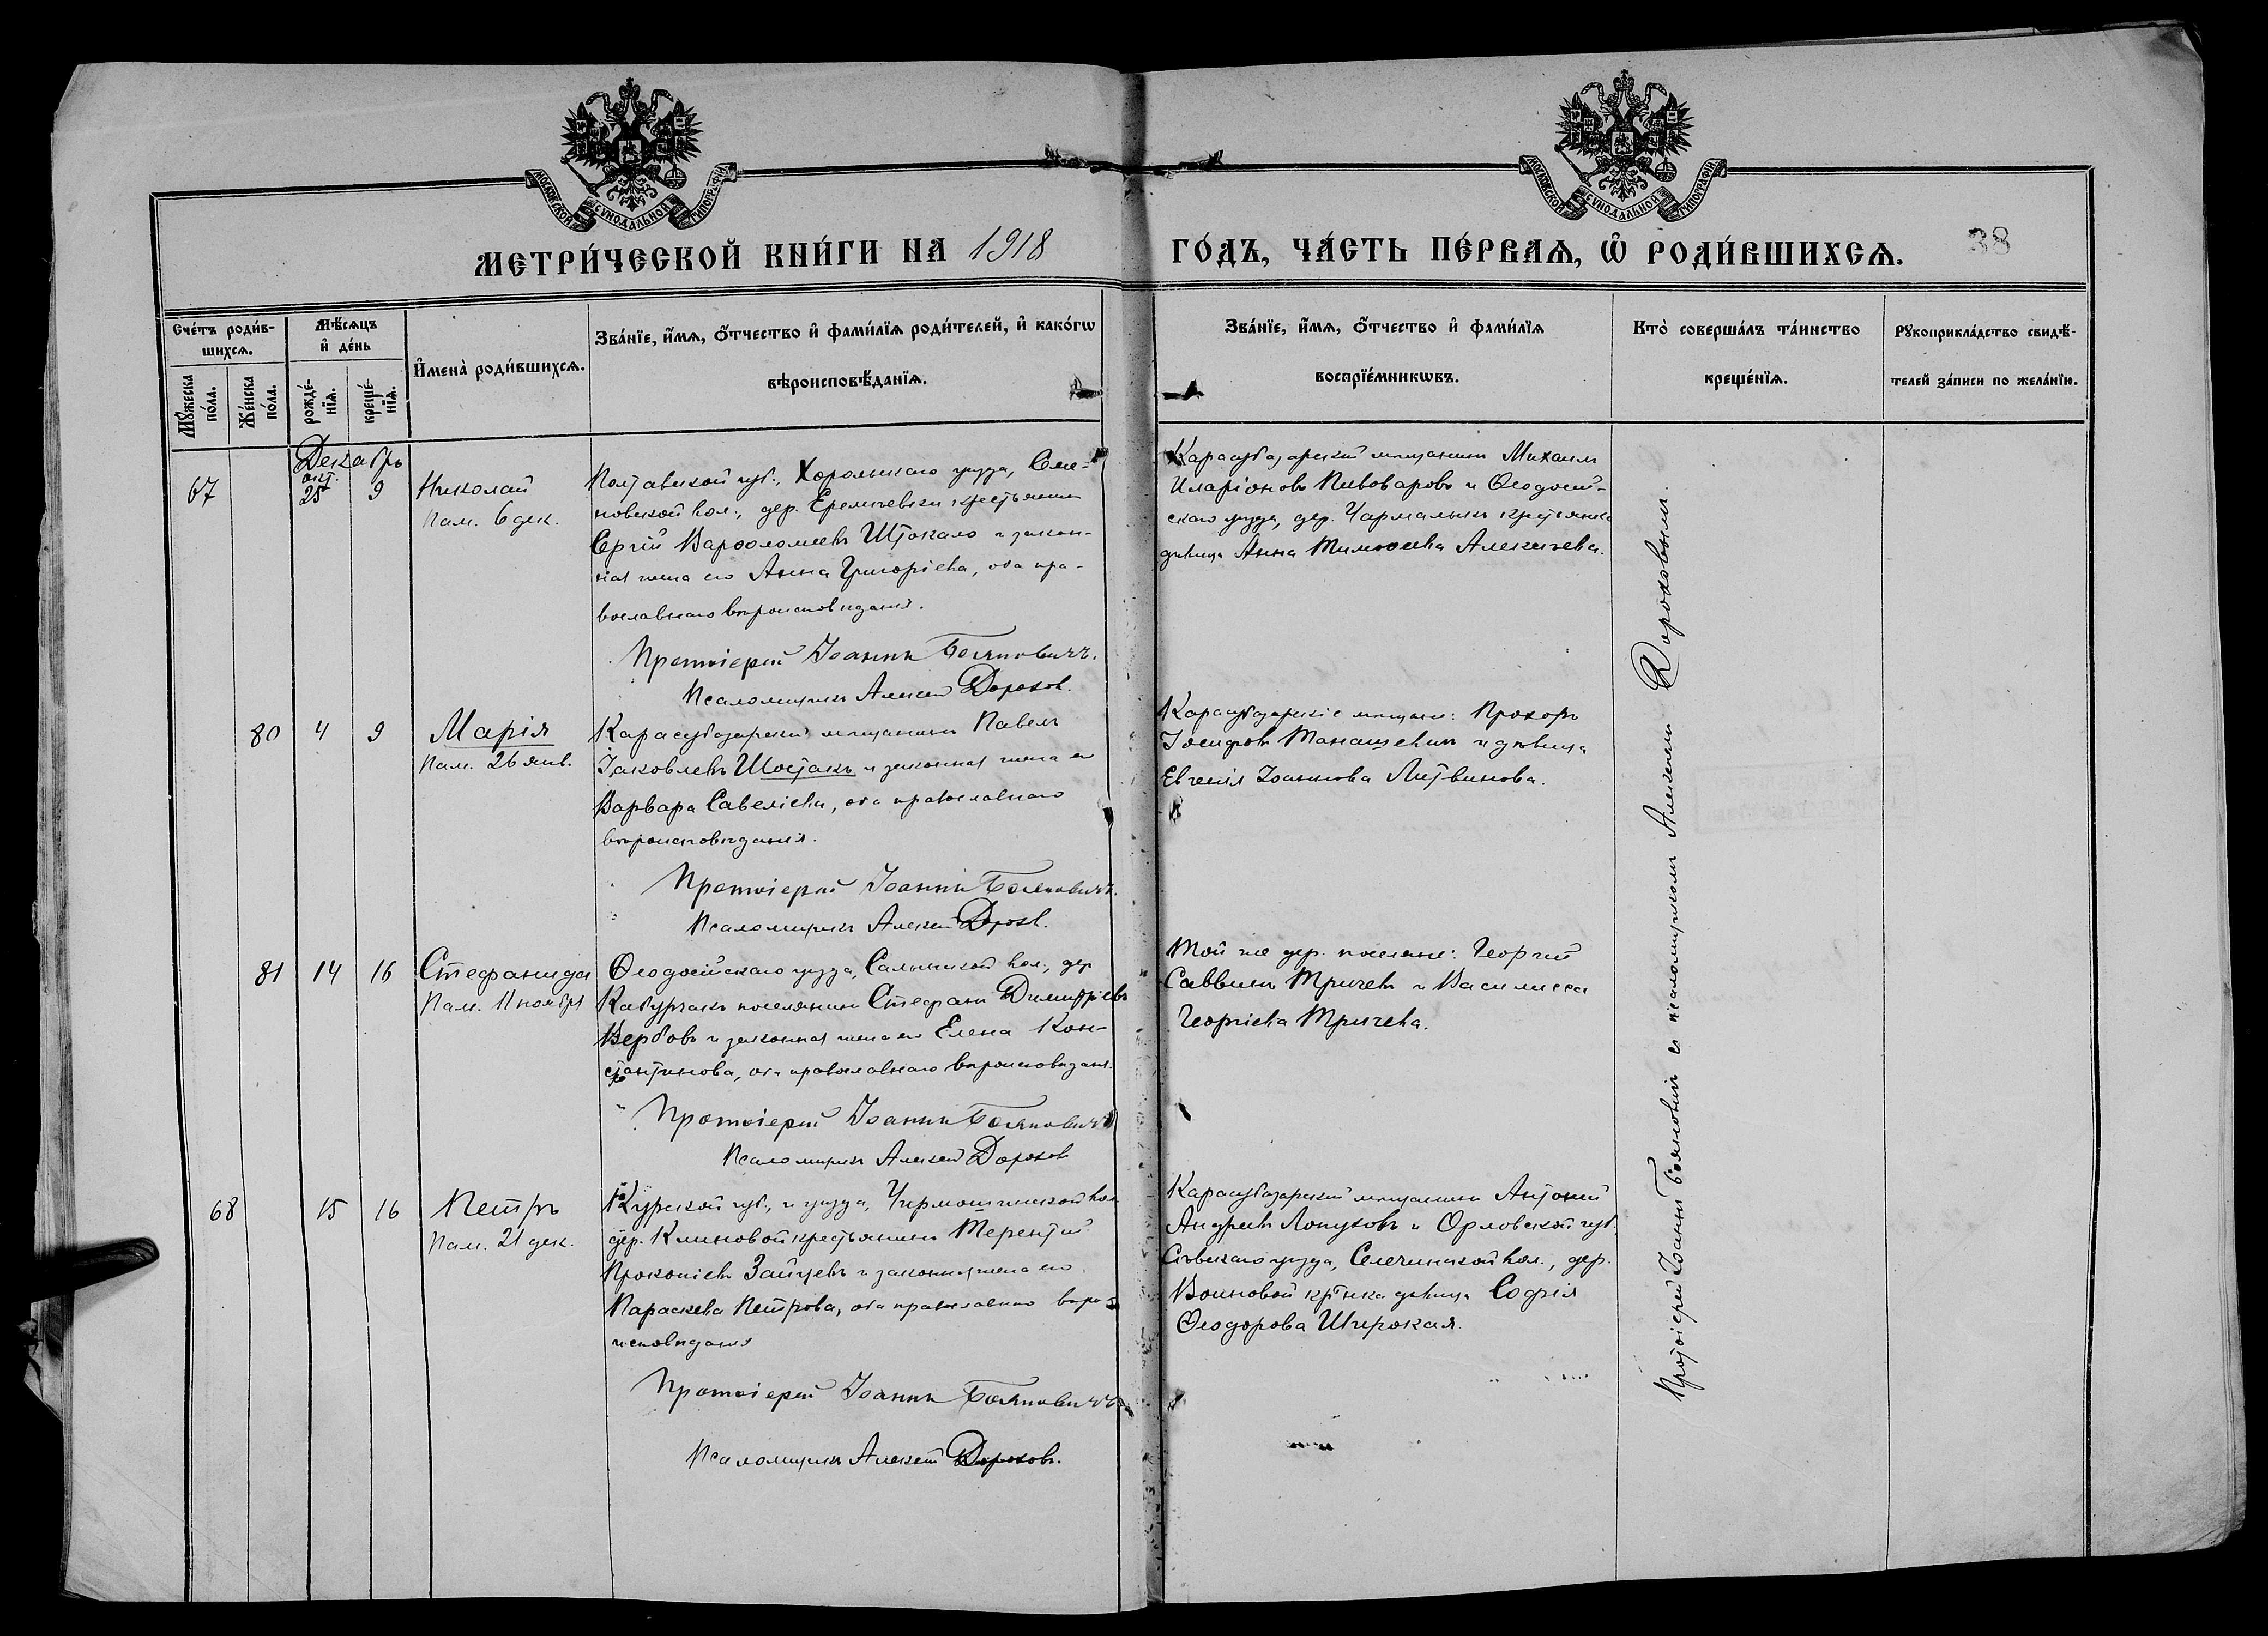 МОСКОВСКОЙ СѴНОДАЛЬНОЙ ТИПОГРАФІИ
МОСКОВСКОЙ СѴНОДАЛЬНОЙ ТИПОГРАФІИ
МЕТРИ́ЧЕСКОЙ КНИ́ГИ НА 1918
ГО́ДЪ, ЧА́СТЬ ПЕ́РВАѦ, Ѽ РОДИ́ВШИХСѦ.
38
Сче́тъ роди́в-
шихсѧ.
Мѣ́сѧцъ
и҆ де́нь
Мꙋ́жеска
по́ла.
Же́нска
по́ла.
рожде́-
нїѧ.
креще́-
нїѧ.
И҆мена̀ роди́вшихсѧ.
Зва́нїе, и҆́мѧ, ѻ҆́тчество и҆ фами́лїѧ роди́телей, и҆ како́гѡ
вѣроисповѣ́данїѧ.
Зва́нїе, и҆́мѧ, ѻ҆́тчество и҆ фами́лїѧ
воспрїе́мникѡвъ.
Кто̀ соверша́лъ та́инство
креще́нїѧ.
Рꙋкоприкла́дство свидѣ́-
телей за́писи по жела́нїю.
Декабрь
67
окт.
25
9
Николай
Пам. 6 дек.
Полтавской губ., Хорольскаго уѣзда, Семе-
новской вол., дер. Еремѣевки крестьянинъ
Сергій Варѳоломеевъ Штокало и закон-
ная жена его Анна Григоріева, оба пра-
вославнаго вѣроисповѣданія.
Протоіерей Іоаннъ Бояновичъ.
Псаломщикъ Алексей Дорохов.
Карасубазарскій мѣщанинъ Михаилъ
Иларіоновъ Пивоваровъ и Ѳеодосій-
скаго уѣзда, дер. Чармалыкъ крестьянка
дѣвица Анна Тимоѳеева Алексеева.
80
4
9
Марія
Пам. 26 янв.
Карасубазарскій мѣщанинъ Павелъ
Іаковлевъ Шостакъ и законная жена его
Варвара Савеліева, оба православнаго
вѣроисповѣданія.
Протоіерей Іоаннъ Бояновичъ.
Псаломщикъ Алексей Дорохов.
Карасубазарскіе мѣщане: Прохоръ
Іосифовъ Манашевичъ и дѣвица
Евгенія Іоаннова Литвинова.
81
14
16
Стефанида
Пам. 11 ноября
Ѳеодосійскаго уѣзда, Салынской вол., дер.
Кабурчакъ поселянинъ Стефанъ Димитріевъ
Вербовъ и законная жена его Елена Кон-
стантинова, оба православнаго вѣроисповѣданія.
Протоіерей Іоаннъ Бояновичъ
Псаломщикъ Алексей Дорохов
Той же дер. поселяне: Георгій
Саввинъ Тричевъ и Василисса
Георгіева Тричева.
68
15
16
Петръ
Пам. 21 дек.
Курской губ., и уѣзда, Чермошинской вол.
дер. Клиновой крестьянинъ Терентій
Прокопіевъ Зайцевъ и законная жена его
Параскева Петрова, оба православнаго вѣро-
исповѣданія
Протоіерей Іоаннъ Бояновичъ
Псаломщикъ Алексей Дороховъ.
Карасубазарскій мѣщанинъ Антоній
Андреевъ Лопуховъ и Орловской губ.
Сѣвскаго уѣзда, Селечинской вол., дер.
Воиновой кр-нка дѣвица Софія
Ѳеодорова Широкая.
Протоіерей Іоаннъ Бояновичъ съ псаломщикомъ Алексеемъ Дороховымъ.